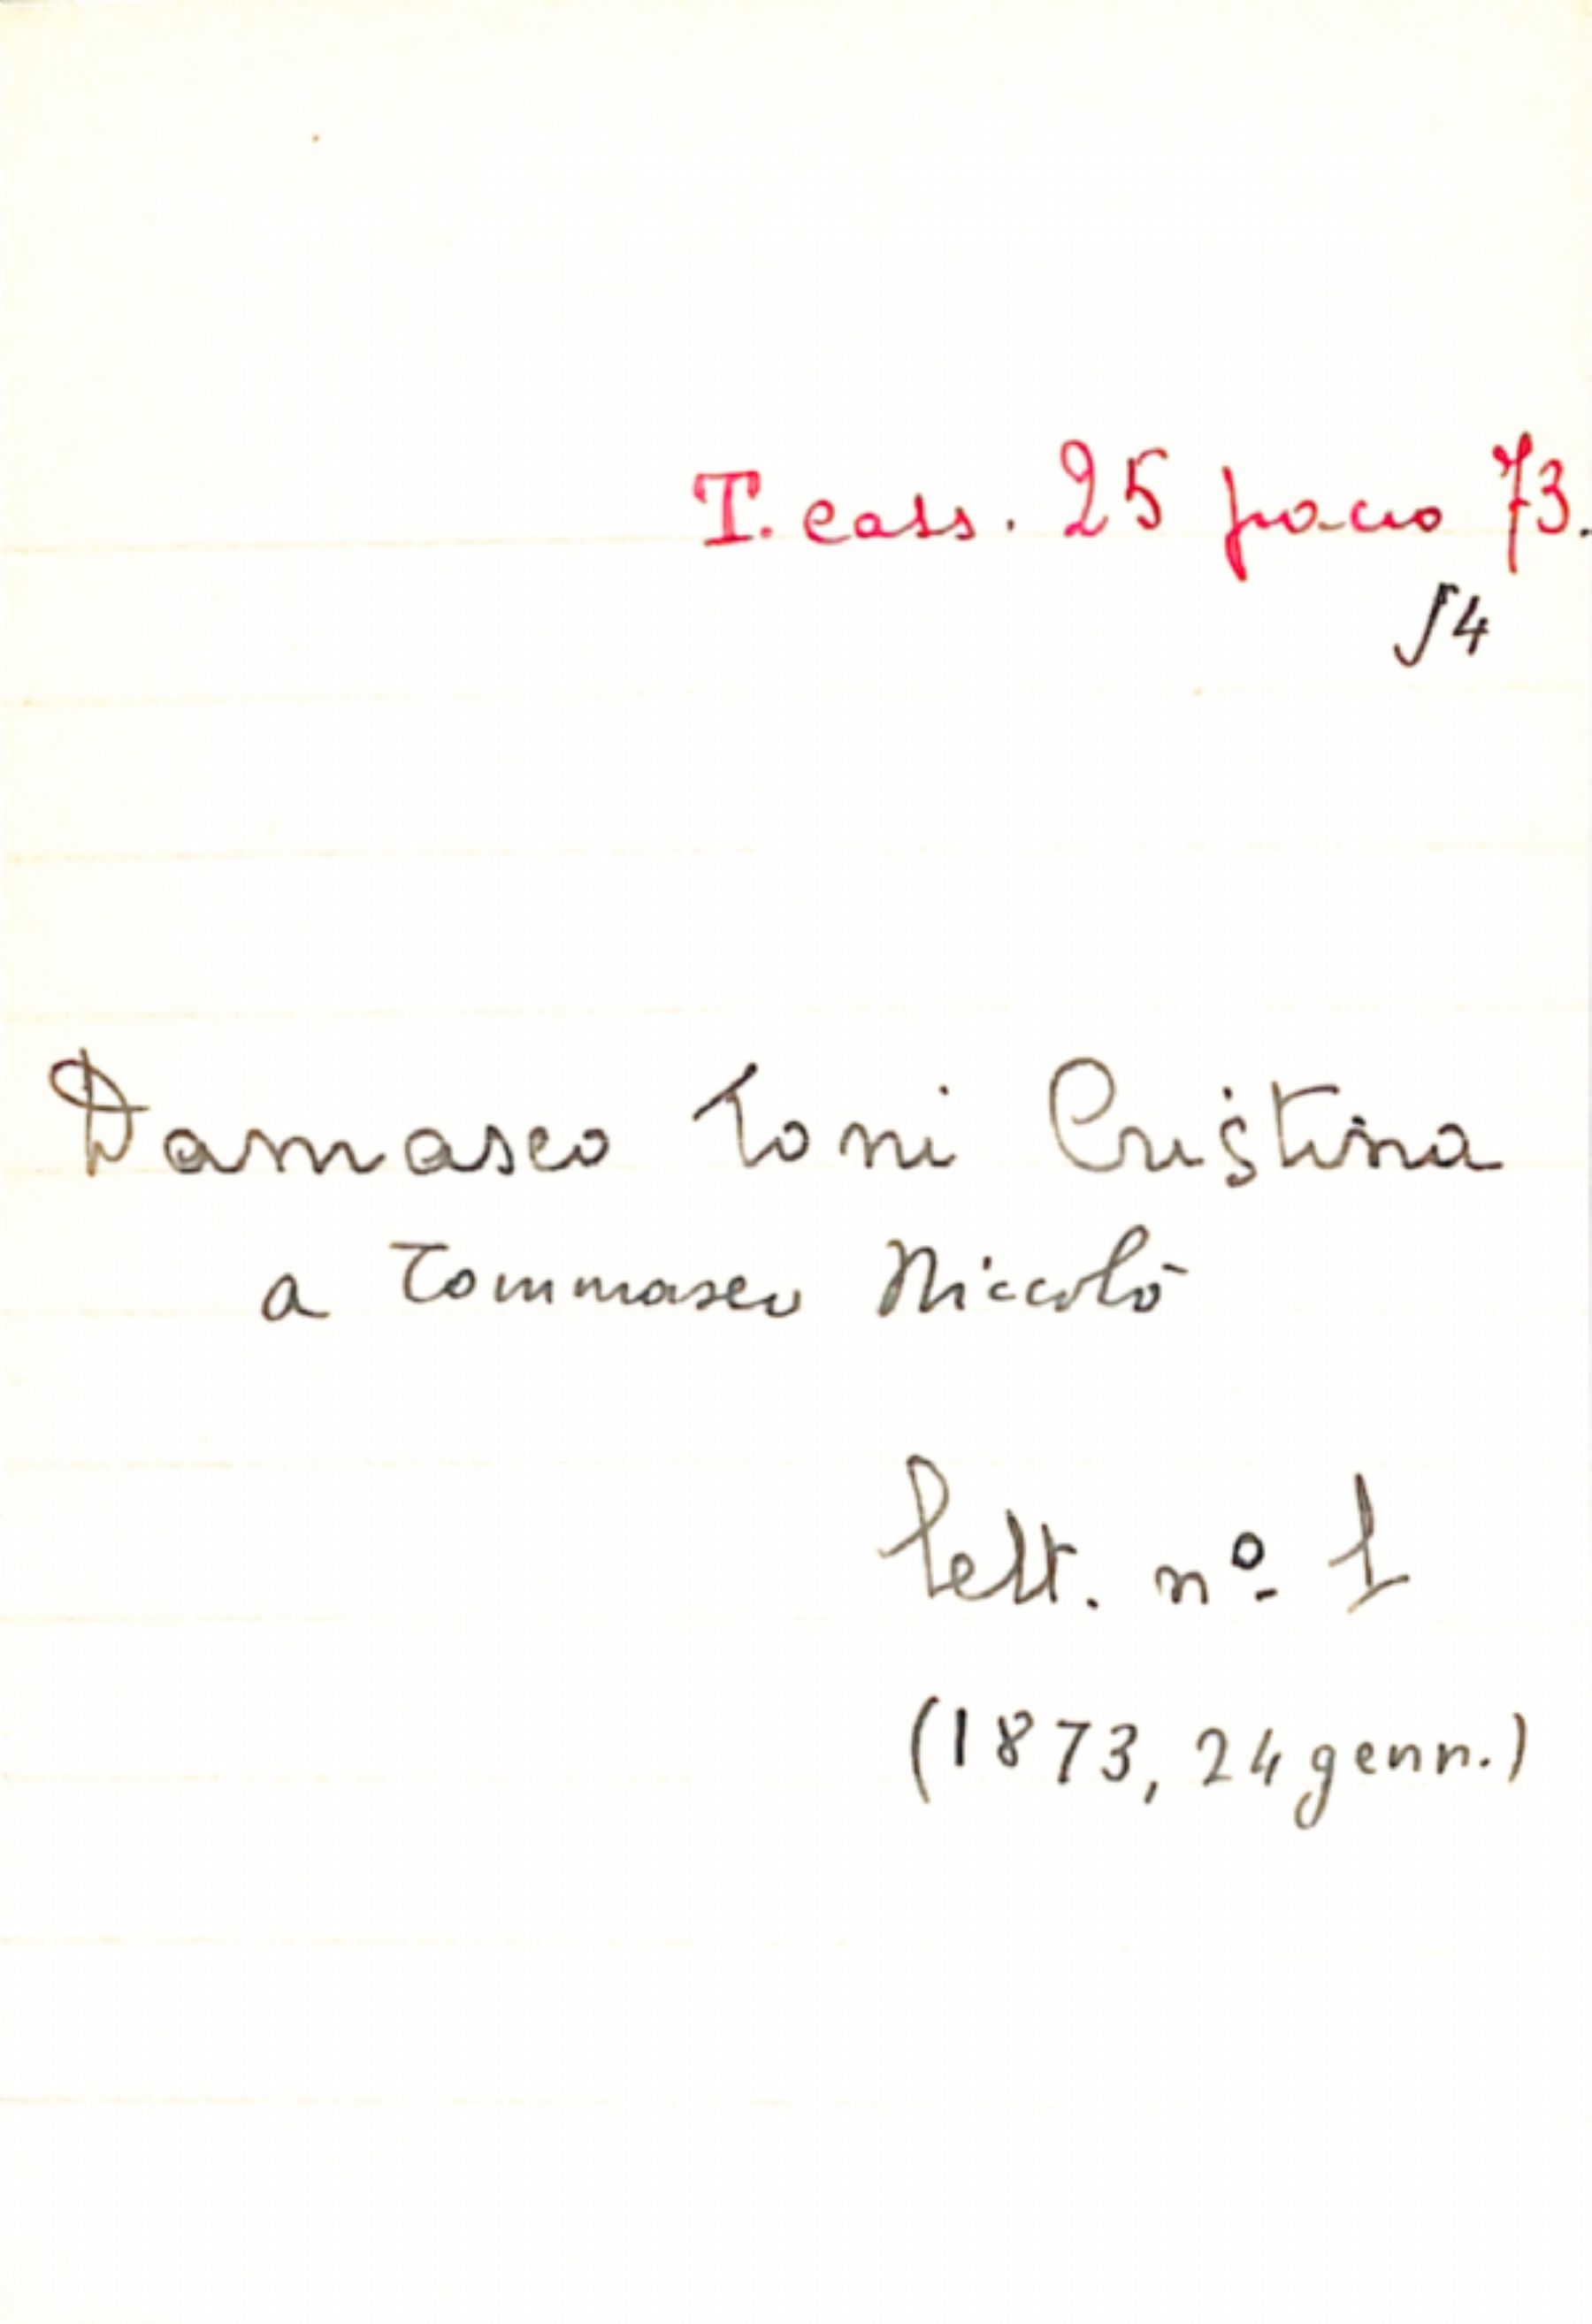 T. cass. 25 pacco 73.
54
Damasco Toni Cristina
a Tommaseo Niccolò
lett. nº 1
(1873, 24 genn.)